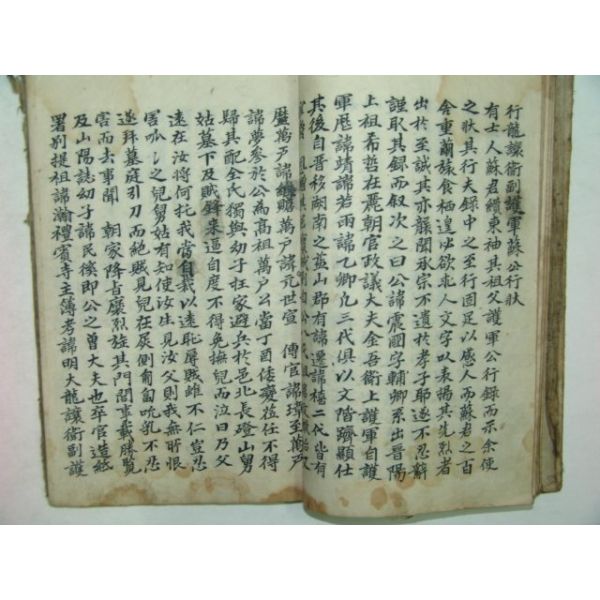 行龍讓衛副護軍蘇公行狀
有士人蘇君纘東袖其祖父護軍公行錄而示余使
之狀其行夫錄中之至行固足以感人而蘇君之百
舍重繭旅食栖遑以欲求人文字以表揭其先烈者
出於至誠其亦龥閣承宗不遺於孝子耶遂不忍辭
謹取其錄而叙次之曰公諱震國字輔卿系出晉陽
上祖希哲在麗朝官政議大夫金吾衛上護軍自護
軍厖諱靖諱若雨諱乙卿凡三代俱以文階躋顯仕
其後自晉移湖南之益山郡有諱遷諱禧二代皆有
歷萬戶諱繼贍萬戶諱元世宣傳官諱瑋至萬戶
諱夢參於公為高祖萬戶公當丁酉倭變在任不得
歸其配全氏獨與幼子在家避兵於邑北長登山舅
姑墓下及賊鋒來逼自度不得免撫兒而泣曰乃父
遠在汝將何托我當自我以遠恥辱賊雖不仁豈忍
害呱呱之兒舅姑有知使汝生見汝父則我無所恨
遂拜墓庭引刀而絶賊見兒在屍側匍匐吮乳不忍
害而去事聞朝家降旨褒烈旌其門閭事載勝覽
及山陽誌幼子諱民後即公之曾大夫也卒官造紙
署別提祖諱瀚禮賓寺主簿考諱明大龍讓衛副護